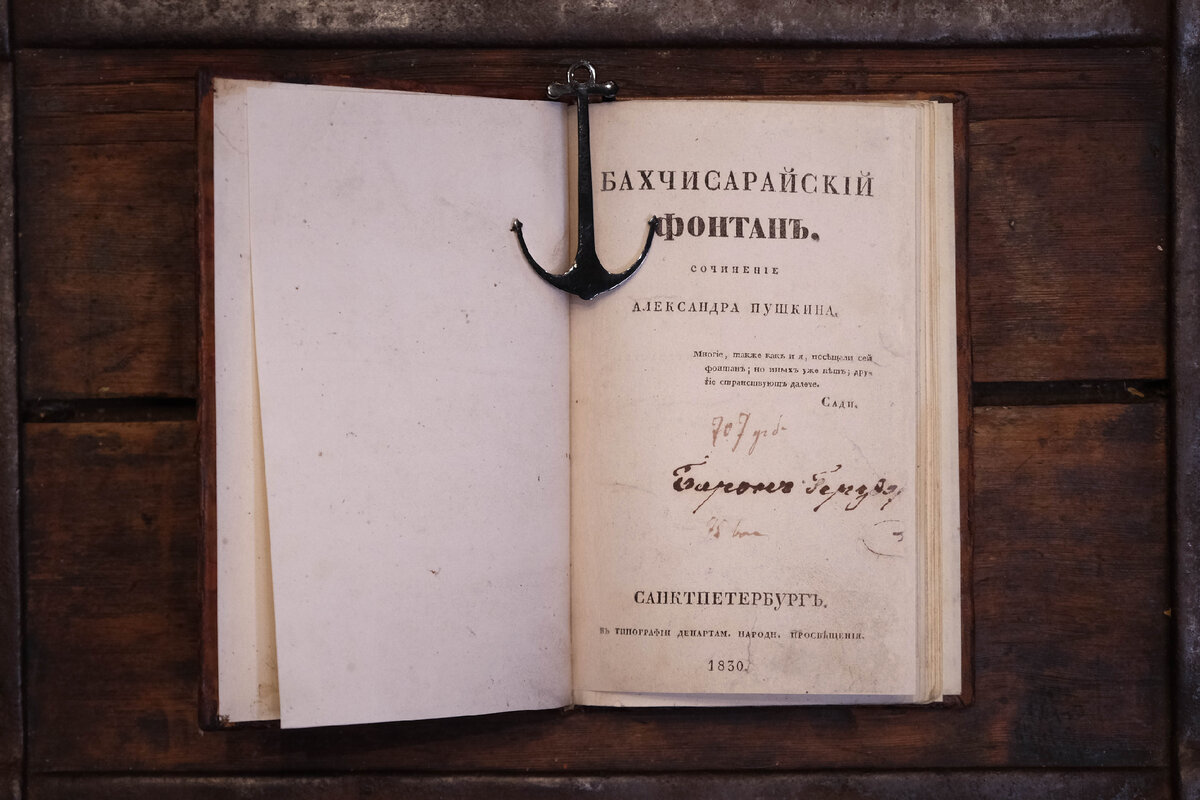 БАХЧИСАРАЙСКІЙ
ФОНТАНЪ.
СОЧИНЕНІЕ
АЛЕКСАНДРА ПУШКИНА.
Многіе, также какъ и я, посѣщали сей
фонтанъ; но иныхъ уже нѣтъ; друг
іе странствуютъ далече.
Сади.
707
Баронъ
САНКТПЕТЕРБУРГЪ.
ВЪ ТИПОГРАФІИ ДЕПАРТАМ. НАРОДН. ПРОСВѢЩЕНІЯ.
1830.